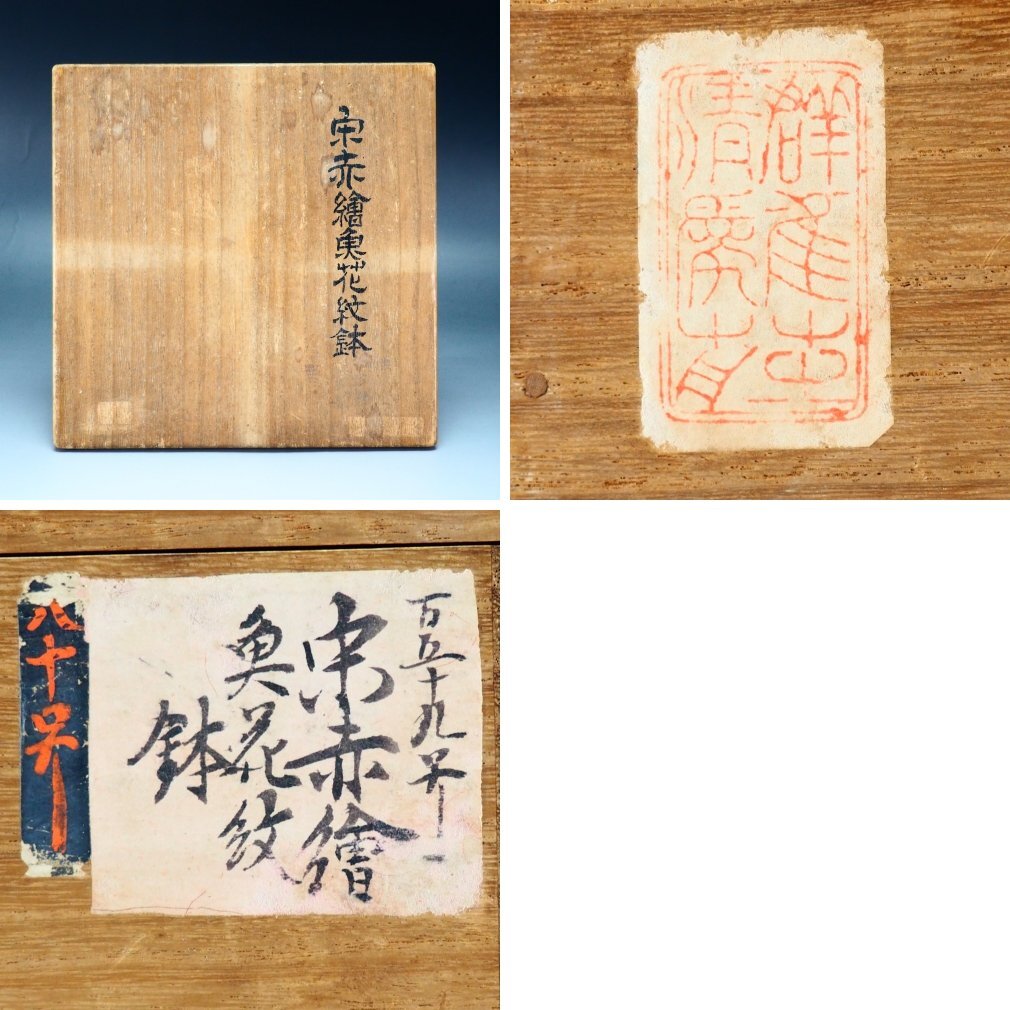 宋赤繪魚花紋鉢
百五十九号
宋赤繪
魚花紋
鉢
八十号